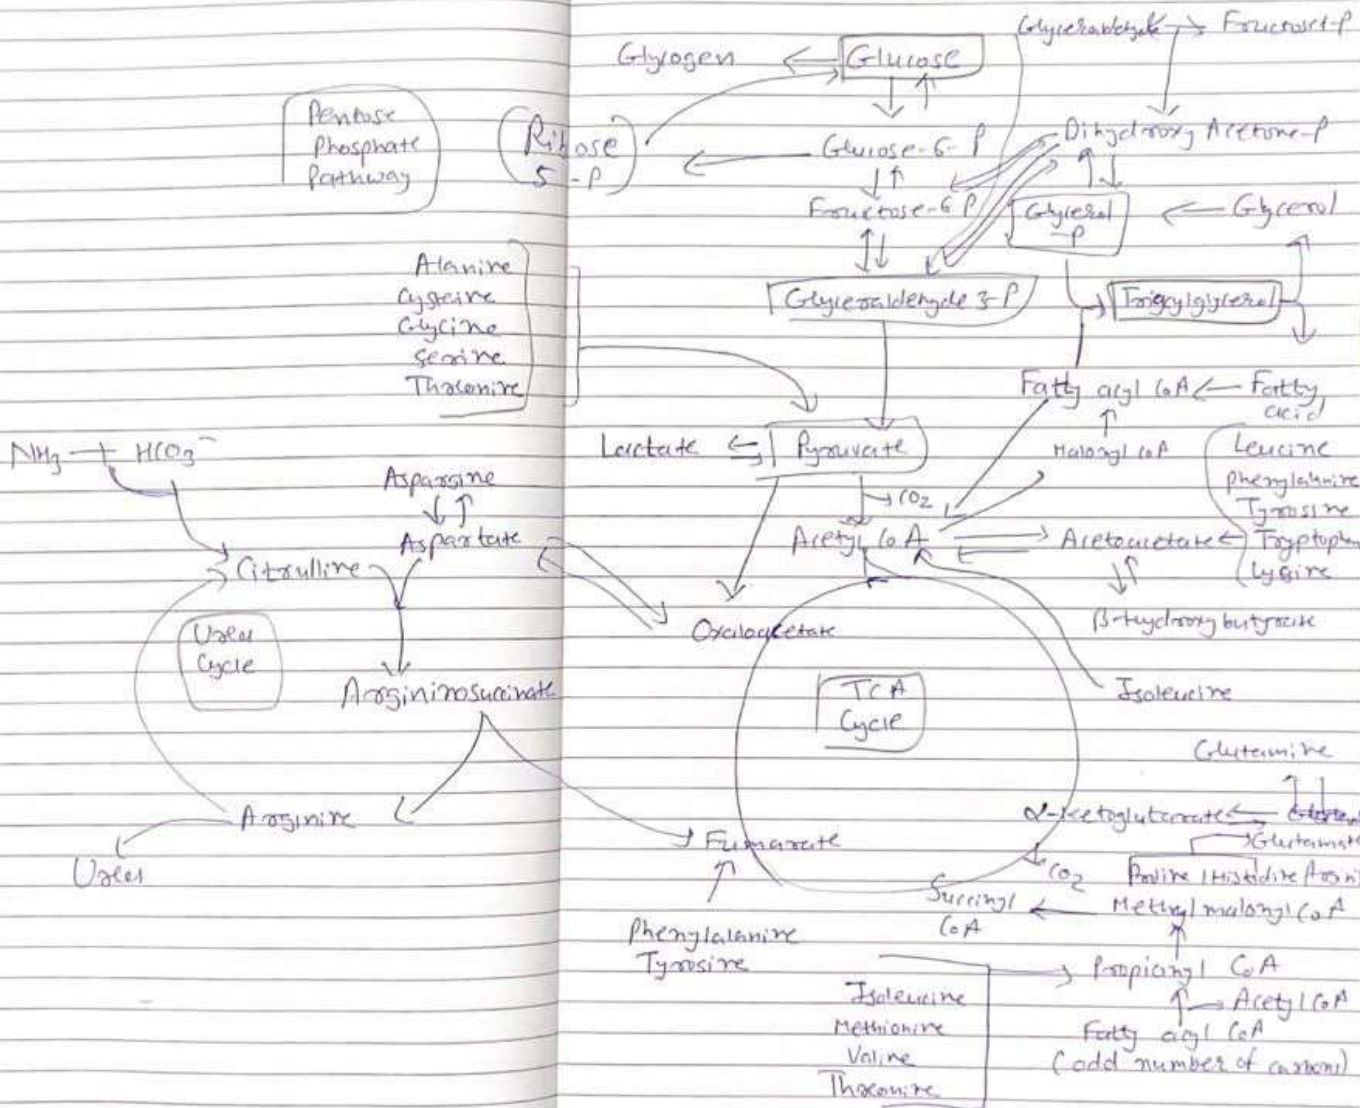 Glyceraldehyde
Fructose1-P
Glycogen
Glucose
Pentose
Phosphate
Pathway
Ribose
5-P
Glucose-6-P
Dihydroxy Acetone-P
Fructose-6 P
Glycerol
-P
Glycerol
Alanine
Cysteine
Glycine
Serine
Threonine
Glyceraldehyde 3-P
Triacylglycerol
Fatty acyl CoA
Fatty
acid
NH3 + HCO3⁻
Lactate
Pyruvate
Malonyl CoA
Leucine
Phenylalanine
Tyrosine
Tryptophan
Lysine
Asparsine
CO2
Aspartate
Acetyl CoA
Acetoacetate
Citrulline
β-Hydroxybutyrate
Urea
Cycle
Oxaloacetate
Argininosuccinate
TCA
Cycle
Isoleucine
Glutamine
Arginine
α-Ketoglutarate
Glutamate
Fumarate
Urea
CO2
Proline / Histidine / Argini
Succinyl
CoA
Methyl malonyl CoA
Phenylalanine
Tyrosine
Propionyl CoA
Isoleucine
Methionine
Valine
Threonine
Acetyl CoA
Fatty acyl CoA
(odd number of carbons)